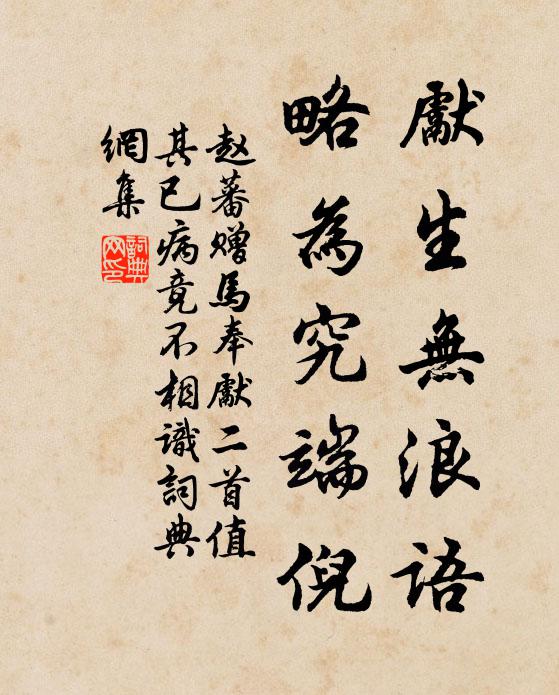 獻生無浪语
略為究端倪
赵蕃赠馬奉獻二首值
其已病竟不相識詞典
網集
詞典網印